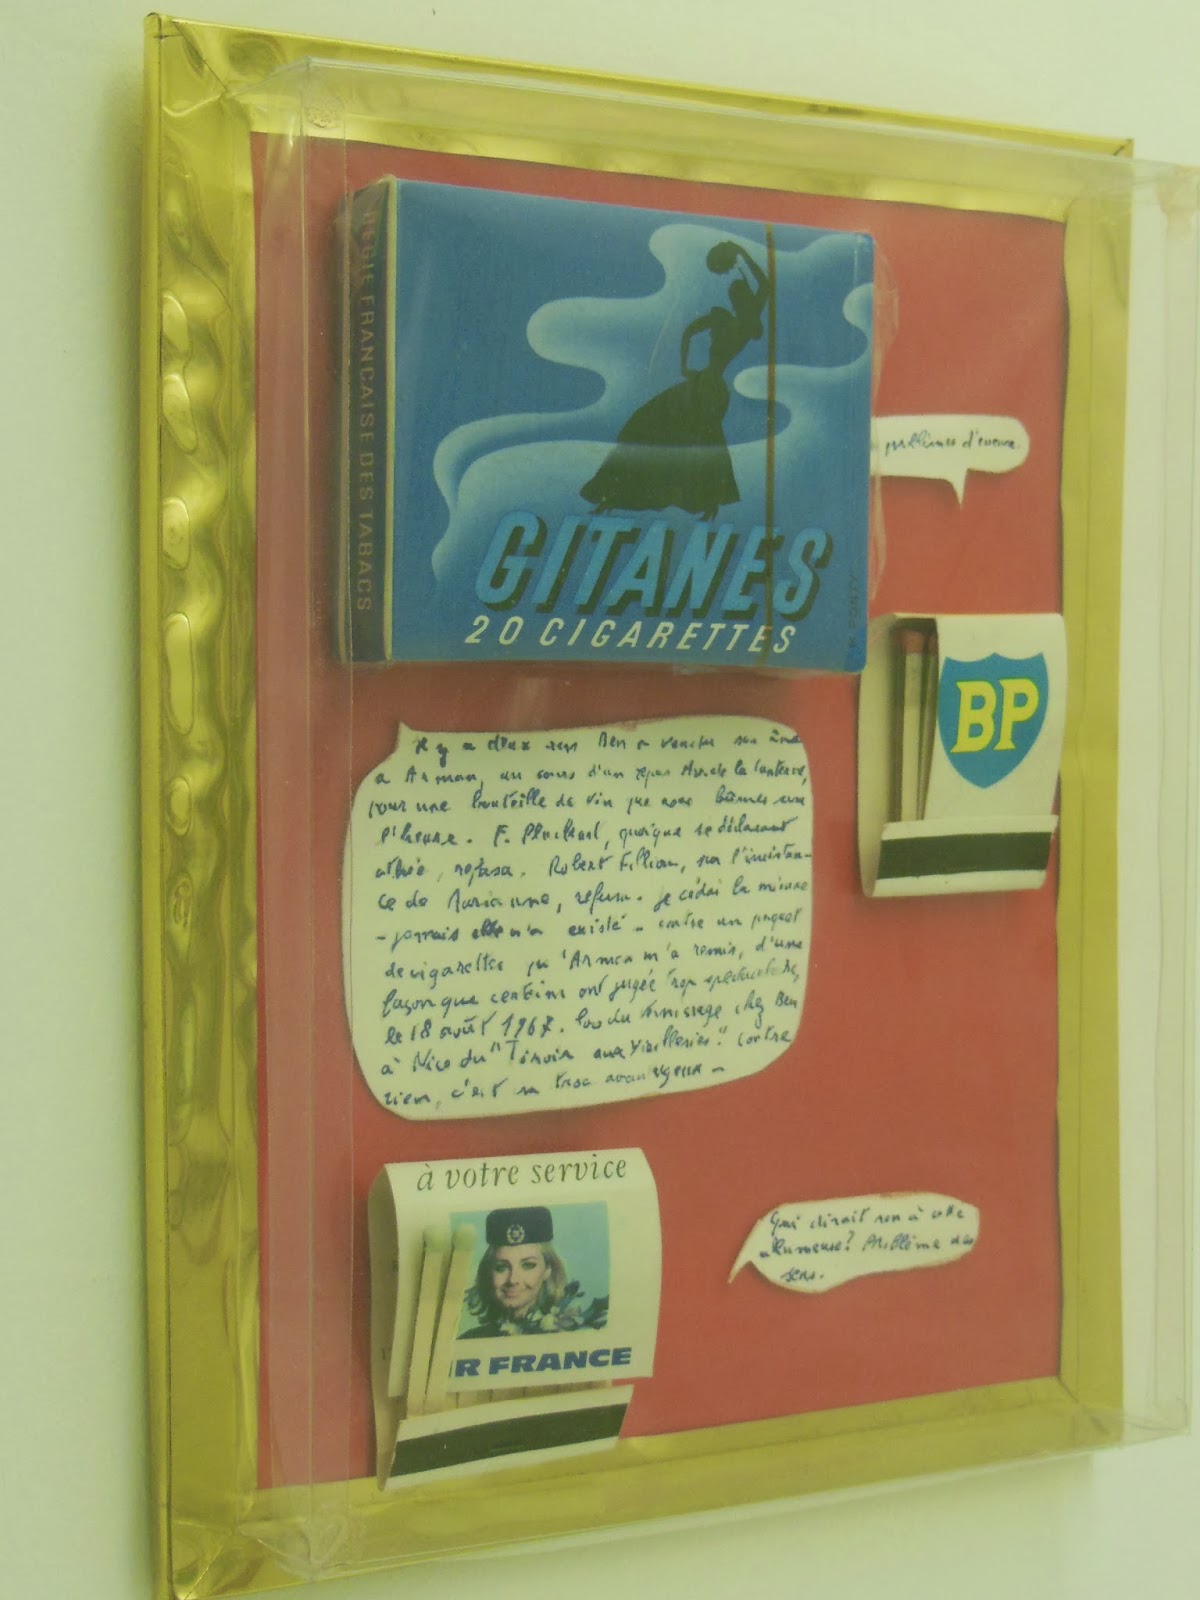 REGIE FRANCAISE DES TABACS
GITANES
20 CIGARETTES
M. PONTY
problèmes d'essence.
BP
Il y a deux ans Ben a vendu son âme
à Arman, au cours d'un repas
pour une bouteille de vin que nous bûmes sur
l'heure. F. quoique se déclarant
athée, refusa. Robert Filliou, sur l'insistan-
ce de Marianne, refusa. Je cédai la mienne
- jamais elle n'a existé - contre un paquet
de cigarettes qu'Arman m'a remis, d'une
façon que certains ont jugée trop spectaculaire,
le 18 août 1967. lors du vernissage chez Ben
à Nice du "Tiroir aux Vieilleries". Contre
rien, c'est un troc avantageux -
à votre service
R FRANCE
Qui dirait non à cette
allumeuse? Problème des
sens.